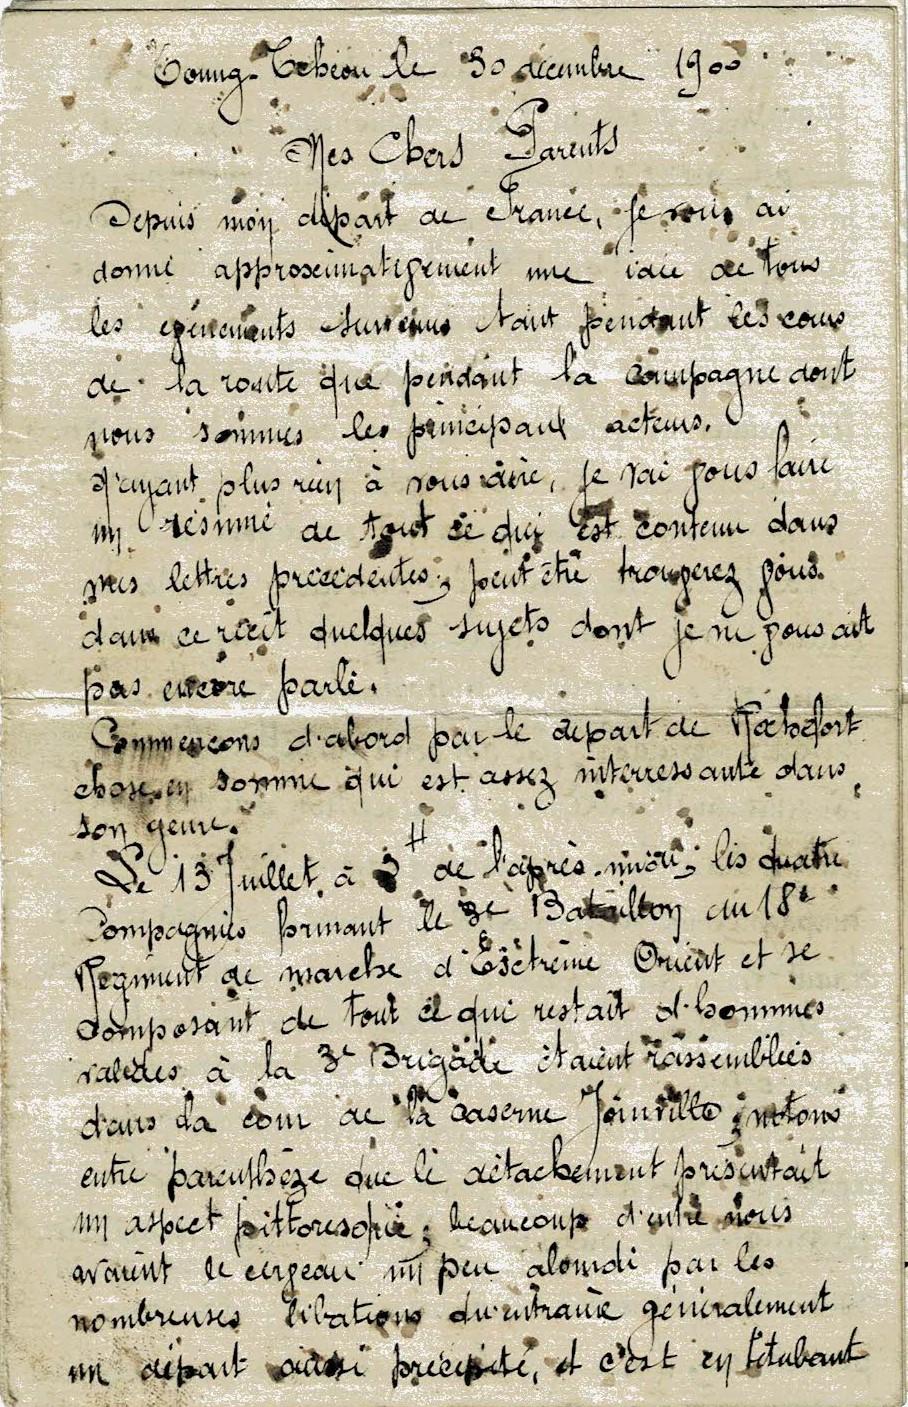 Toung-Tcheou le 30 décembre 1900
Mes Chers Parents
Depuis mon départ de France, je vous ai
donné approximativement une idée de tous
les événements survenus tant pendant les cours
de la route que pendant la campagne dont
nous sommes les principaux acteurs.
N'ayant plus rien à vous dire, je vai vous faire
un résumé de tout ce qui est contenu dans
mes lettres précédentes; peut être trouverez vous
dans ce récit quelques sujets dont je ne vous ait
pas encore parlé.
Commencons d'abord par le départ de Rochefort
chose en somme qui est assez interressante dans
son genre.
Le 13 Juillet à 3H de l'après-midi, les quatre
Compagnies formant le 3e Bataillon du 18e
Regiment de marche d'Exètrème Orient et se
composant de tout ce qui restait d'hommes
valides à la 3e Brigade étaient rassemblées
dans la cour de la caserne Joinville; notons
entre parenthèze que le détachement présentait
un aspect pittoresque; beaucoup d'entre nous
avaient le cerveau un peu alourdi par les
nombreuses libations qu'entraine généralement
un départ aussi précipité, et c'est en titubant